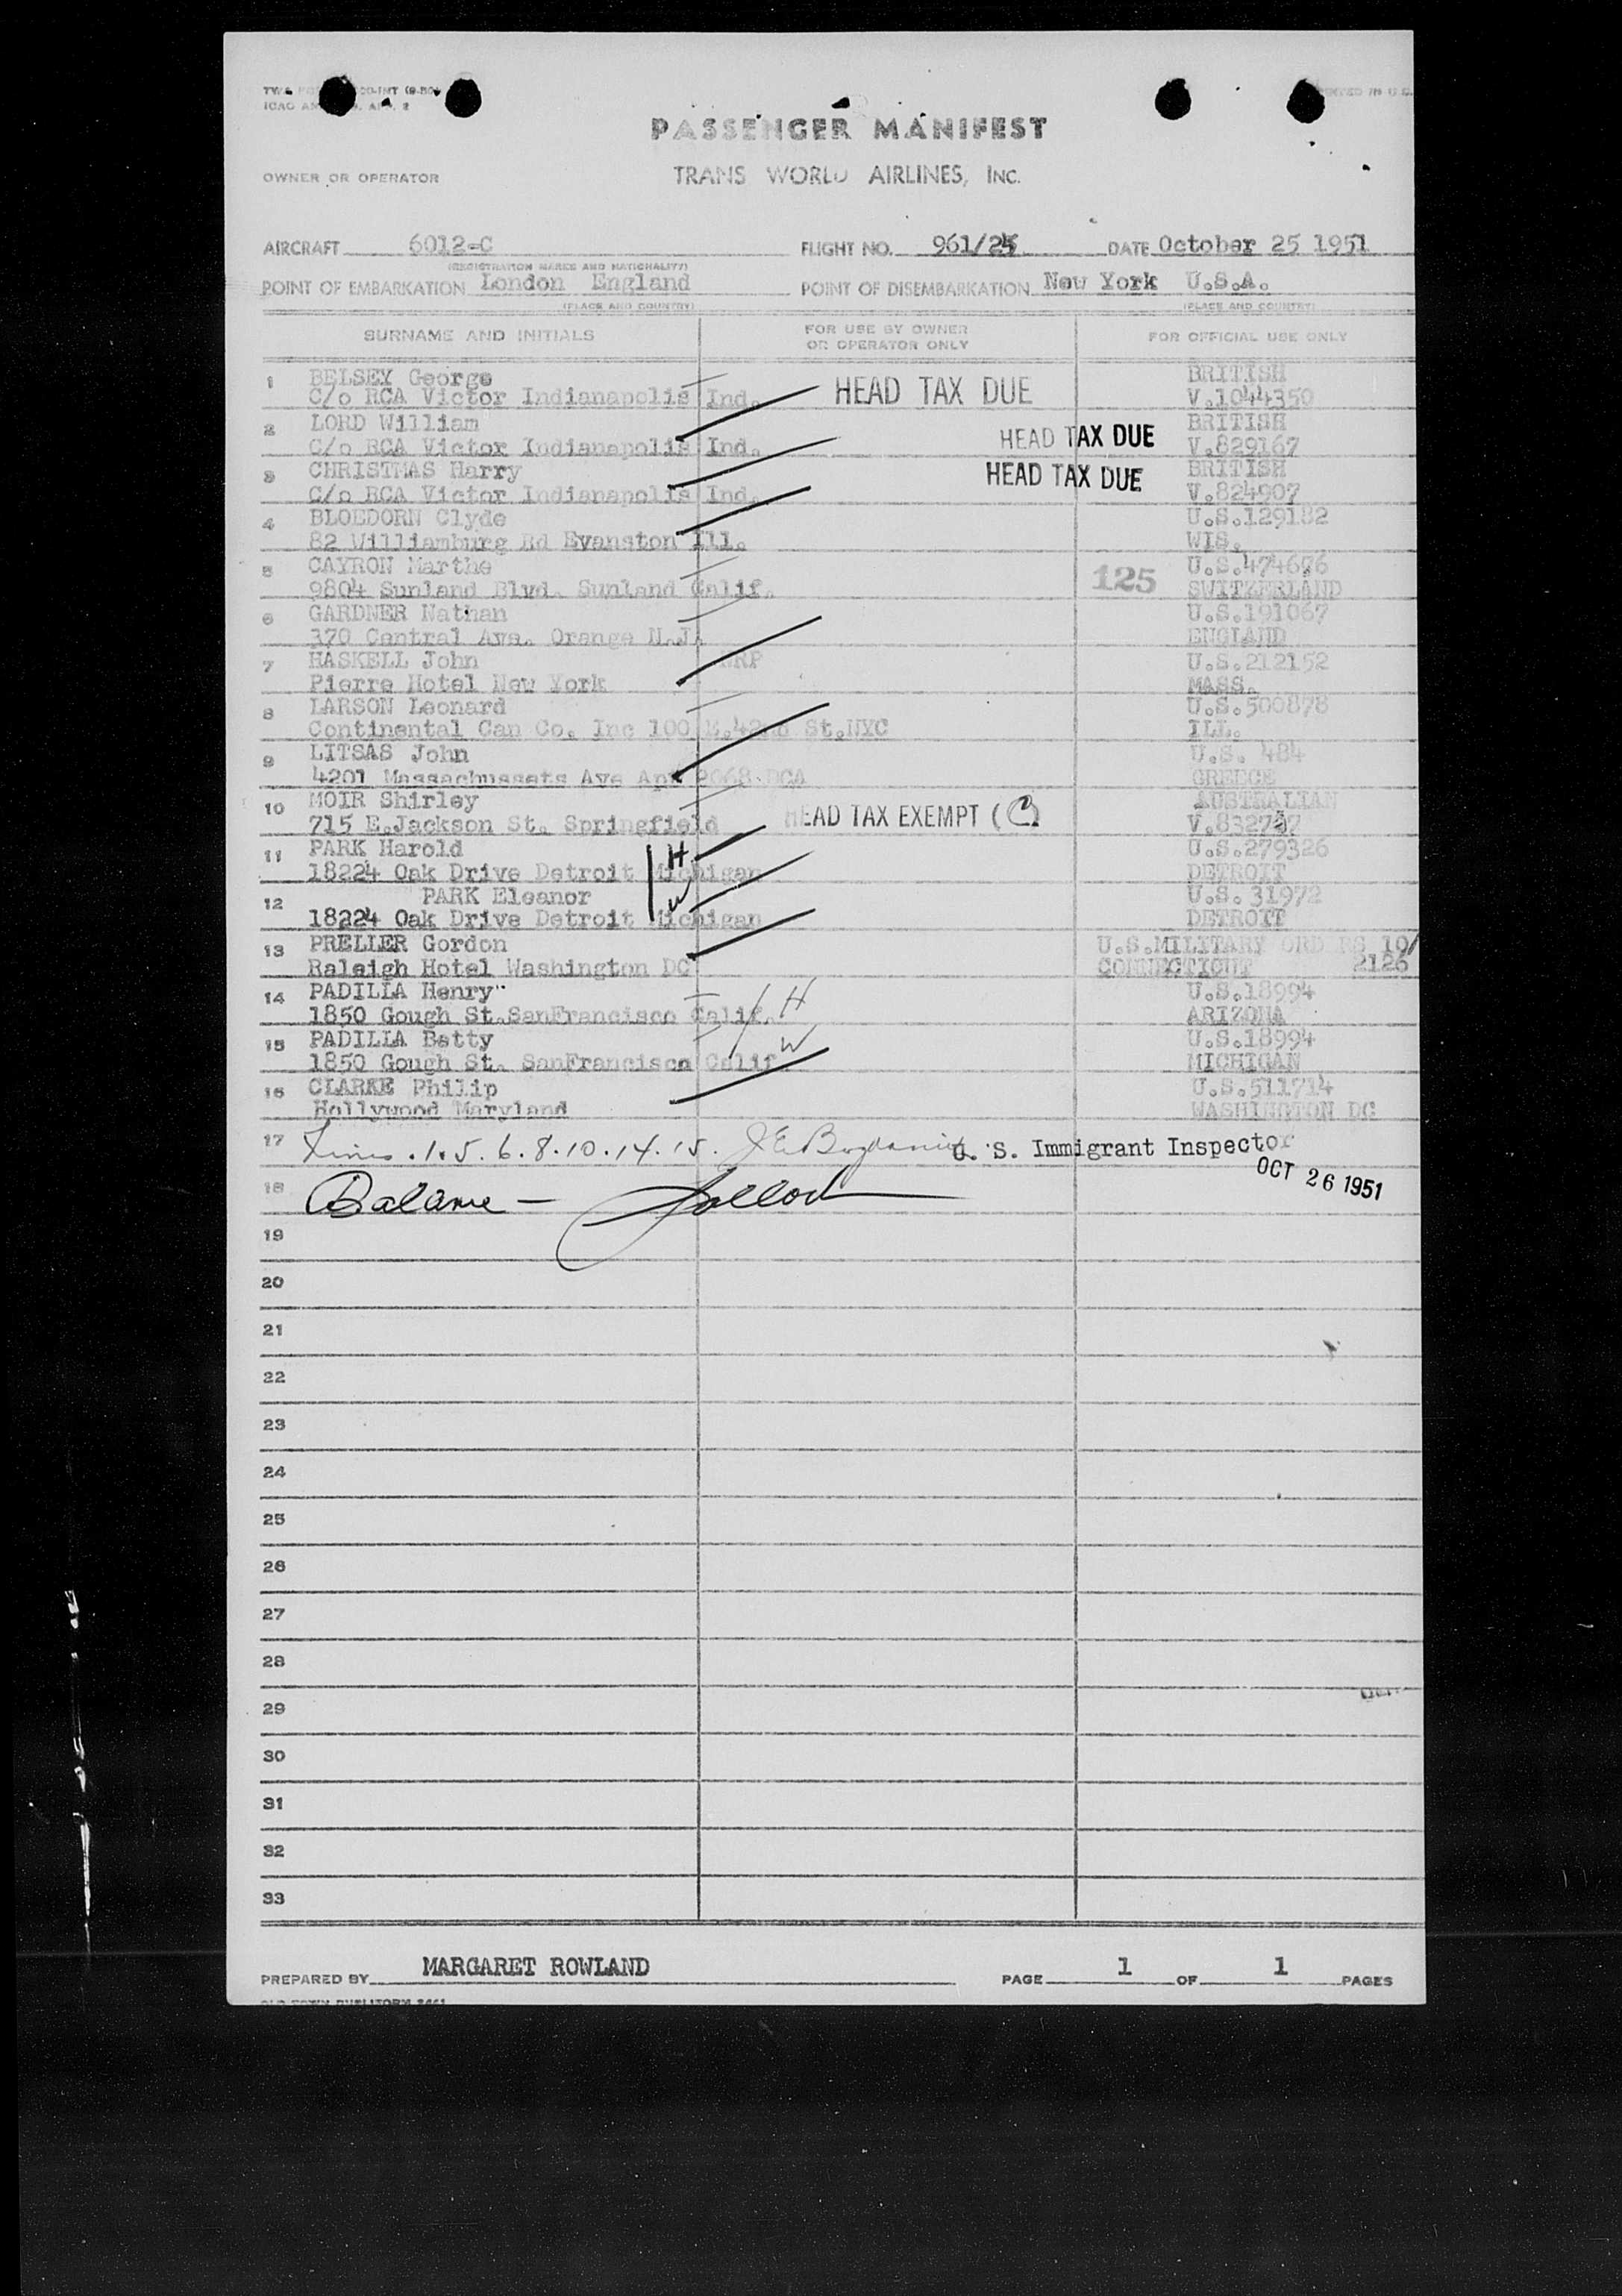 PASSENGER MANIFEST
OWNER OR OPERATOR TRANS WORLD AIRLINES, INC.
AIRCRAFT 6012-C FLIGHT NO. 961/25 DATE October 25 1951
(REGISTRATION MARKS AND NATIONALITY)
POINT OF EMBARKATION London England POINT OF DISEMBARKATION New York U.S.A.
(PLACE AND COUNTRY) (PLACE AND COUNTRY)
SURNAME AND INITIALS FOR USE BY OWNER OR OPERATOR ONLY FOR OFFICIAL USE ONLY
1 BELSEY George HEAD TAX DUE BRITISH
C/o RCA Victor Indianapolis Ind. V.1044350
2 LORD William HEAD TAX DUE BRITISH
C/o RCA Victor Indianapolis Ind. V.829167
3 CHRISTMAS Harry HEAD TAX DUE BRITISH
C/o RCA Victor Indianapolis Ind. V.824907
4 BLOEDORN Clyde U.S.129182
82 Williamburg Rd Evanston Ill. WIS.
5 CAYRON Marthe 125 U.S.474676
9804 Sunland Blvd. Sunland Calif. SWITZERLAND
6 GARDNER Nathan U.S.191067
370 Central Ave. Orange N.J. ENGLAND
7 HASKELL John U.S.212152
Pierre Hotel New York MASS.
8 LARSON Leonard U.S.500878
Continental Can Co. Inc 100 E.42nd St.NYC ILL.
9 LITSAS John U.S. 484
4201 Massachussets Ave Apt 2068 DCA GREECE
10 MOIR Shirley HEAD TAX EXEMPT (2) AUSTRALIAN
715 E.Jackson St. Springfield V.832787
11 PARK Harold H U.S.279326
18224 Oak Drive Detroit Michigan DETROIT
12 PARK Eleanor W U.S. 31972
18224 Oak Drive Detroit Michigan DETROIT
13 PRELLER Gordon U.S.MILITARY ORDERS 10/
Raleigh Hotel Washington DC CONNECTICUT 2126
14 PADILLA Henry H U.S.18994
1850 Gough St.SanFrancisco Calif. ARIZONA
15 PADILLA Betty W U.S.18994
1850 Gough St. SanFrancisco Calif. MICHIGAN
16 CLARKE Philip U.S.511714
Hollywood Maryland WASHINGTON DC
17 Lines . 1. 5. 6. 8. 10. 14. 15. U. S. Immigrant Inspector
OCT 26 1951
18 Balance -
19
20
21
22
23
24
25
26
27
28
29
30
31
32
33
PREPARED BY MARGARET ROWLAND PAGE 1 OF 1 PAGES